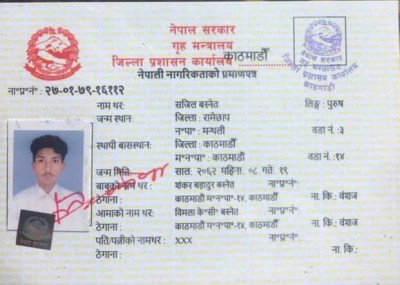 नेपाल सरकार
गृह मन्त्रालय
जिल्ला प्रशासन कार्यालय काठमाडौँ
नेपाली नागरिकताको प्रमाणपत्र
ना॰प्र॰नं॰ : २७-०१-७९-१६११२
नाम थर: सजिल बस्नेत लिङ्ग : पुरुष
जन्म स्थान: जिल्ला : रामेछाप
न॰पा॰ : मन्थली वडा नं :३
स्थायी बासस्थान: जिल्ला : काठमाडौं
म॰न॰पा॰ : काठमाडौं वडा नं.:१४
जन्म मिति: साल: २०६२ महिना: ०८ गते: १९
बाबुको नाम थर : शंकर बहादुर बस्नेत ना॰प्र॰नं॰
ठेगाना : काठमाडौं म॰न॰पा॰-१४, काठमाडौं ना. कि.: वंशज
आमाको नाम थर: विमला के॰सी॰ बस्नेत ना॰प्र॰नं॰
ठेगाना : काठमाडौं म॰न॰पा॰-१४, काठमाडौं ना. कि.: वंशज
पति/पत्नीको नामथर : xxx ना॰प्र॰नं॰
ठेगाना : ना. कि.:
नेपाल सरकार
गृह मन्त्रालय
जिल्ला प्रशासन कार्यालय
काठमाडौं